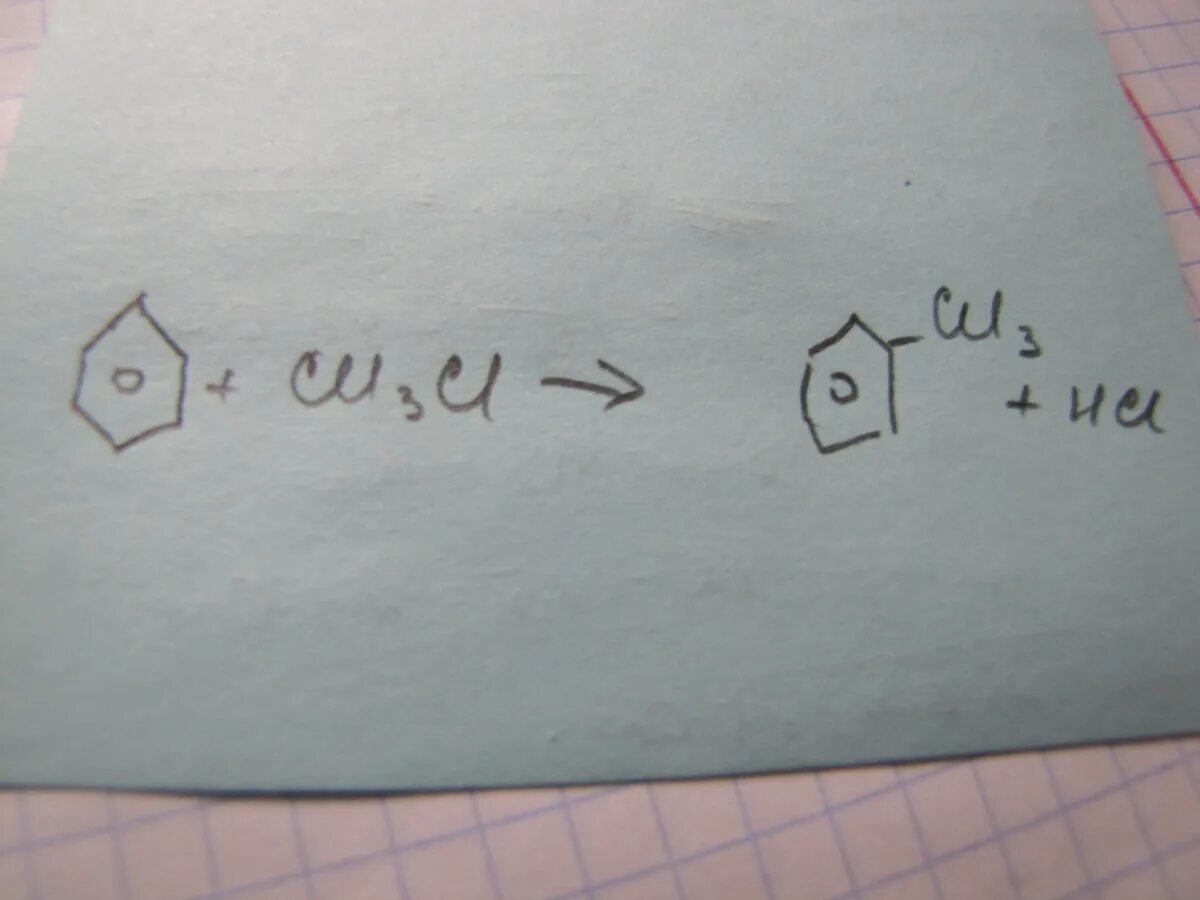 + CH₃Cl → CH₃
+ HCl